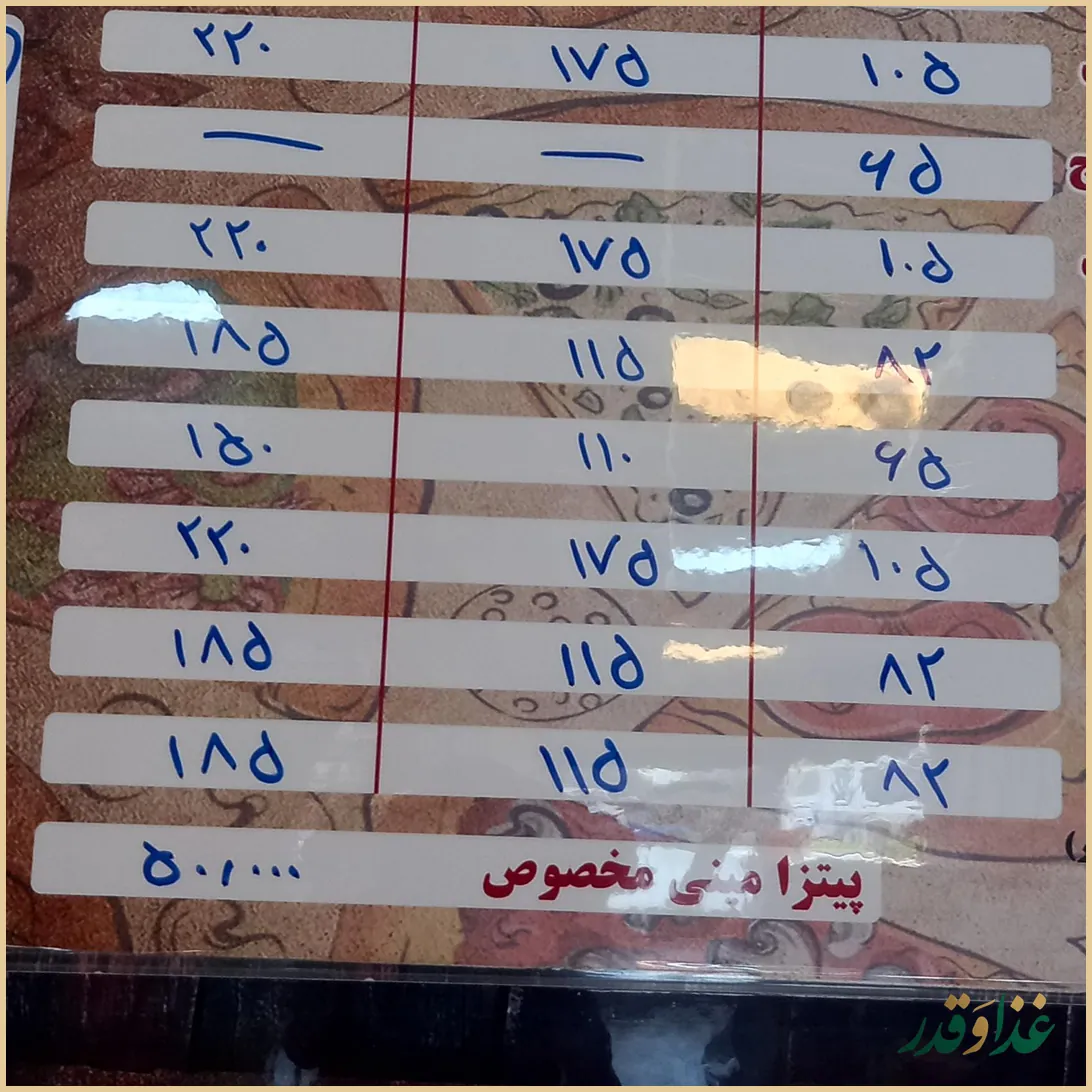 ۱۰۵ ۱۷۵ ۲۲۰
۶۵ — —
۱۰۵ ۱۷۵ ۲۲۰
۸۲ ۱۱۵ ۱۸۵
۶۵ ۱۱۰ ۱۵۰
۱۰۵ ۱۷۵ ۲۲۰
۸۲ ۱۱۵ ۱۸۵
۸۲ ۱۱۵ ۱۸۵
پیتزا مینی مخصوص ۵۰,۰۰۰
غذا وَ قدر